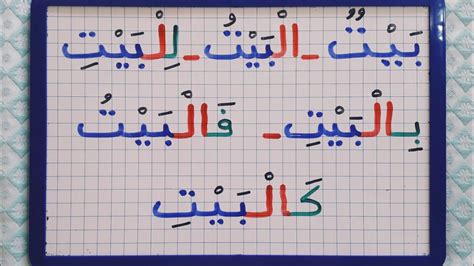 بَيْتٌ - الْبَيْتُ - لِلْبَيْتِ
بِالْبَيْتِ - فَالْبَيْتُ
كَالْبَيْتِ